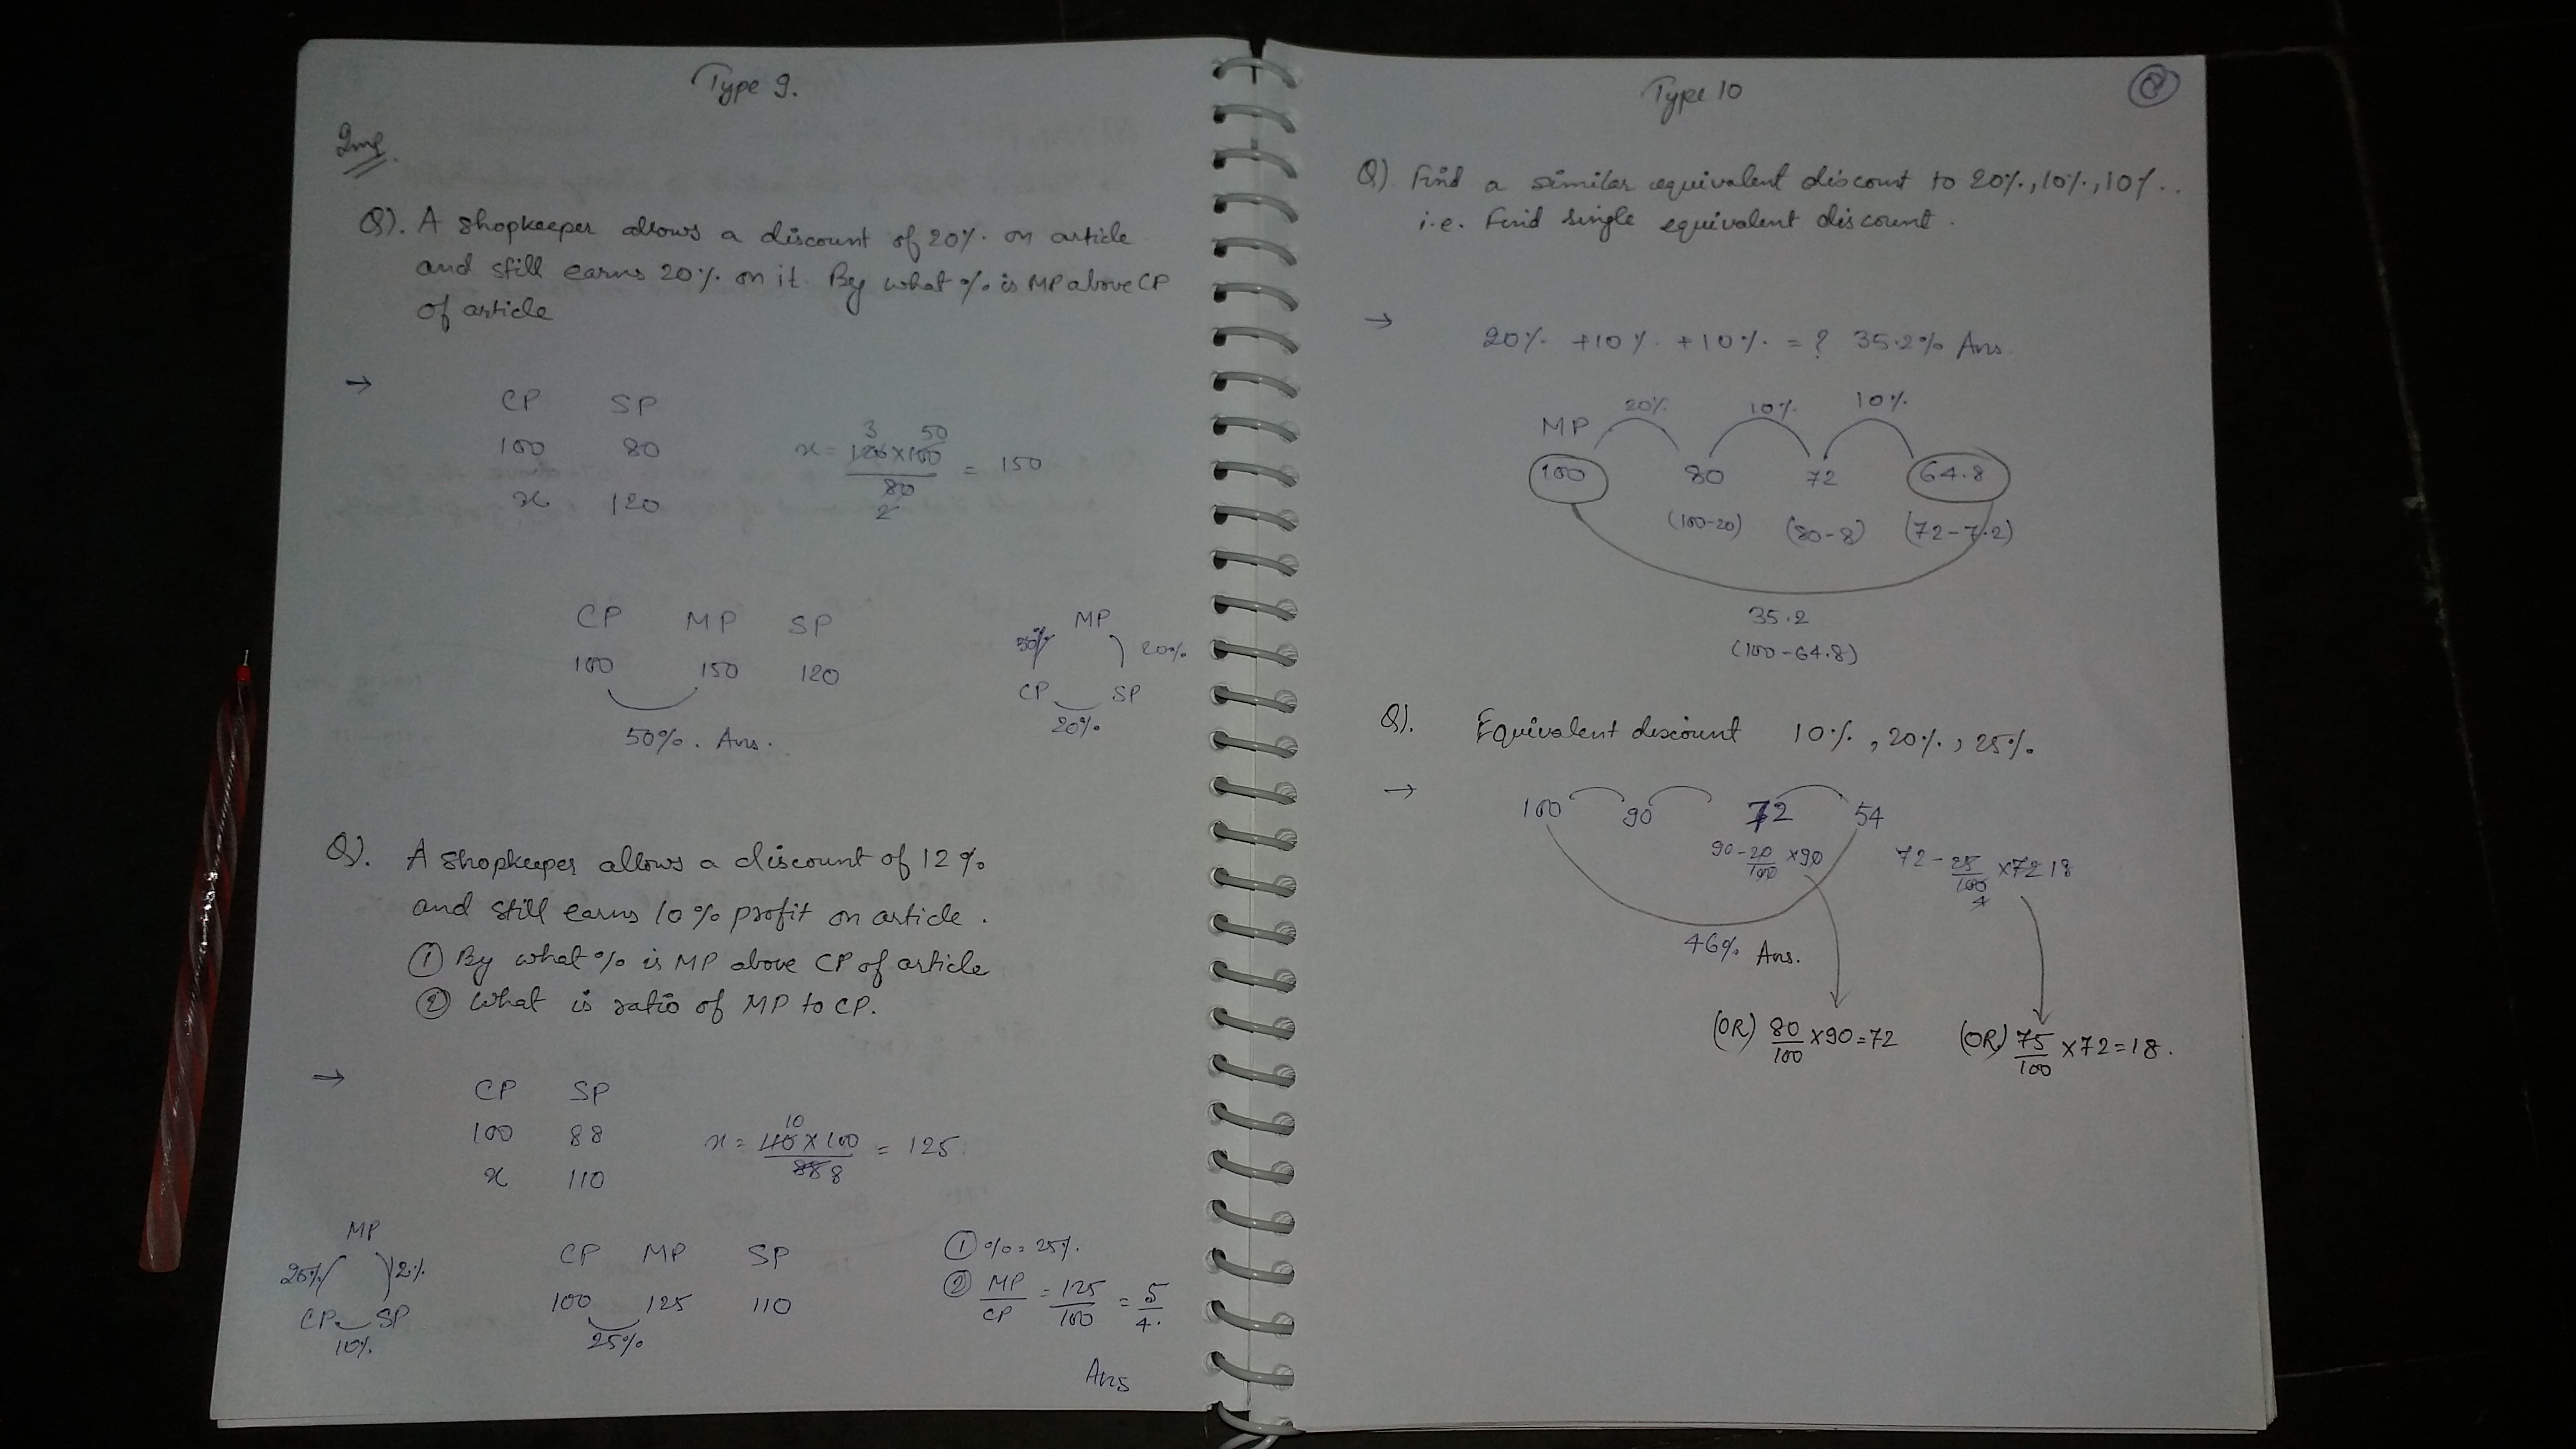 Type 9.
Imp.
Q). A shopkeeper allows a discount of 20% on article
and still earns 20% on it. By what % is MP above CP
of article
→
CP SP
100 80
x 120
3 50
x = 120×100 = 150
80
2
CP MP SP
100 150 120
50%. Ans.
MP
50% 20%
CP SP
20%
Q). A shopkeeper allows a discount of 12%
and still earns 10% profit on article.
① By what % is MP above CP of article
② What is ratio of MP to CP.
→
CP SP
100 88
x 110
10
x = 110×100 = 125
88 8
MP
25% 12%
CP SP
10%
CP MP SP
100 125 110
25%
① % = 25%.
② MP = 125 = 5
CP 100 4.
Ans
Type 10
Q). Find a similar equivalent discount to 20%, 10%, 10%..
i.e. Find single equivalent discount.
→
20% + 10% + 10% = ? 35.2% Ans.
20% 10% 10%
MP
100 80 72 64.8
(100-20) (80-8) (72-7.2)
35.2
(100-64.8)
Q). Equivalent discount 10%, 20%, 25%.
→
100 90 72 54
90-20 ×90 72-25 ×72 18
100 100
4
46% Ans.
(OR) 80 ×90=72 (OR) 75 ×72=18.
100 100